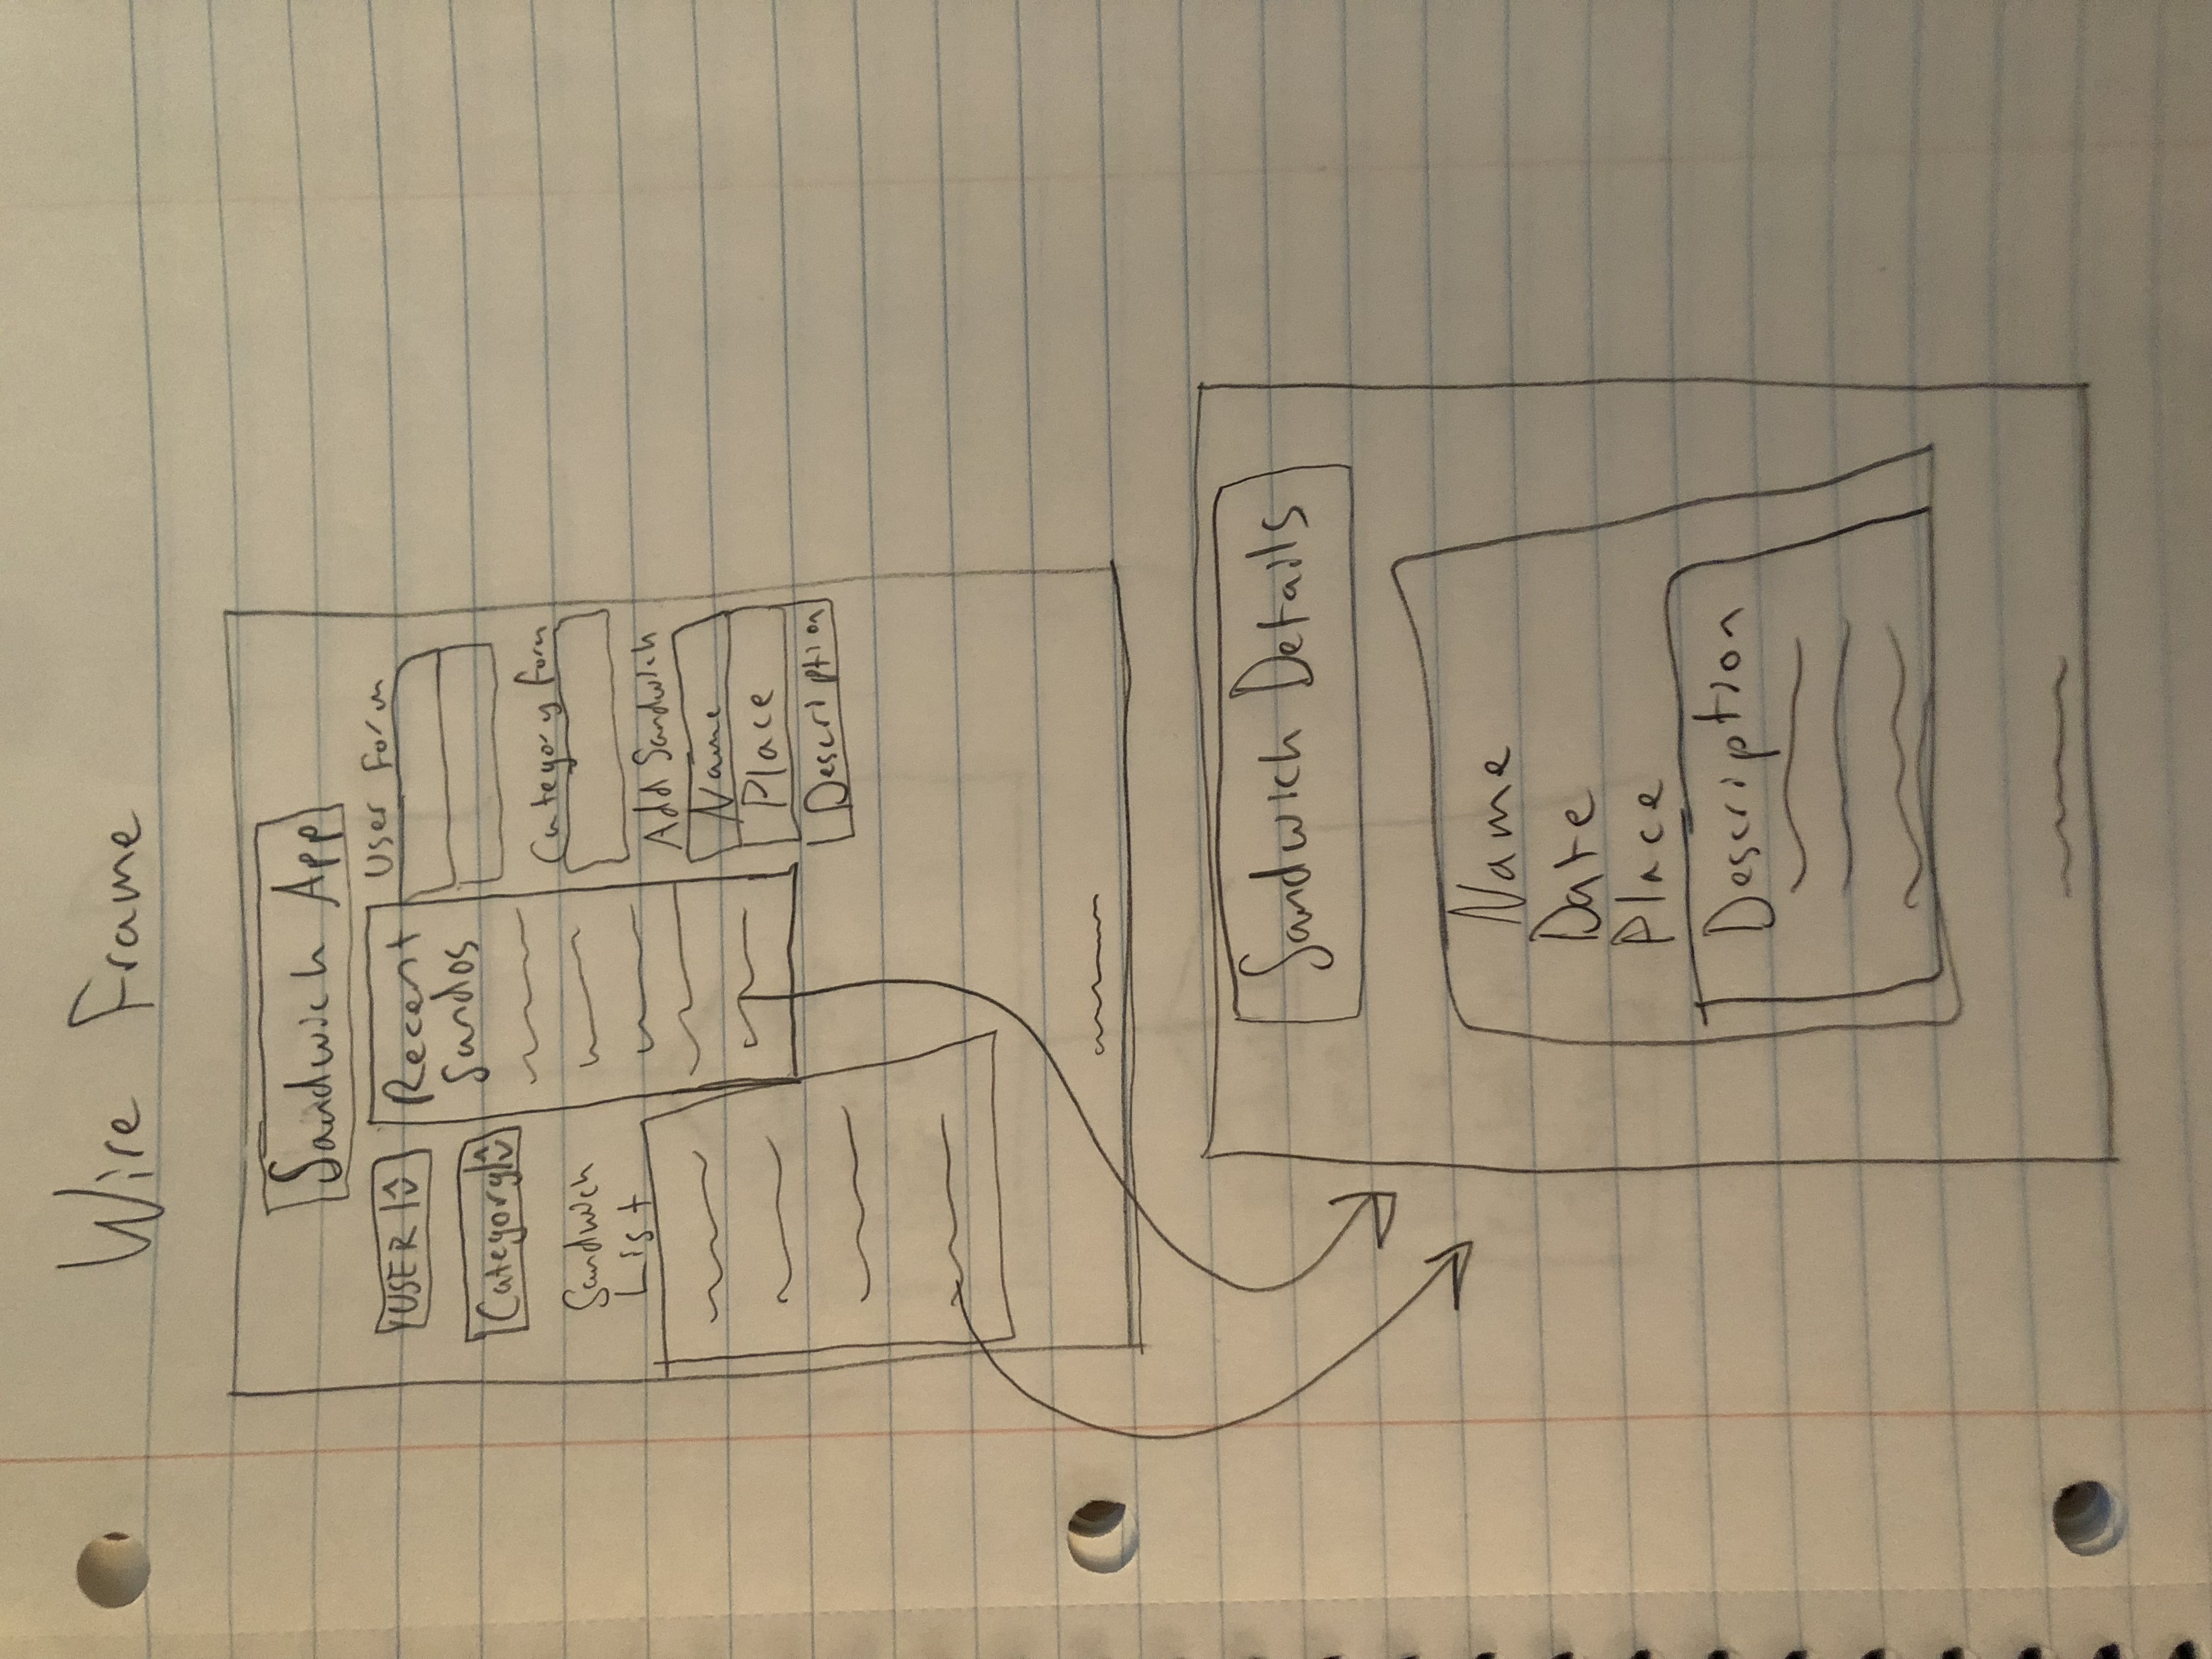 Wire Frame
Sandwich App
USER
Category
Sandwich
List
Recent
Sandos
User Form
Category Form
Add Sandwich
Name
Place
Description
Sandwich Details
Name
Date
Place
Description